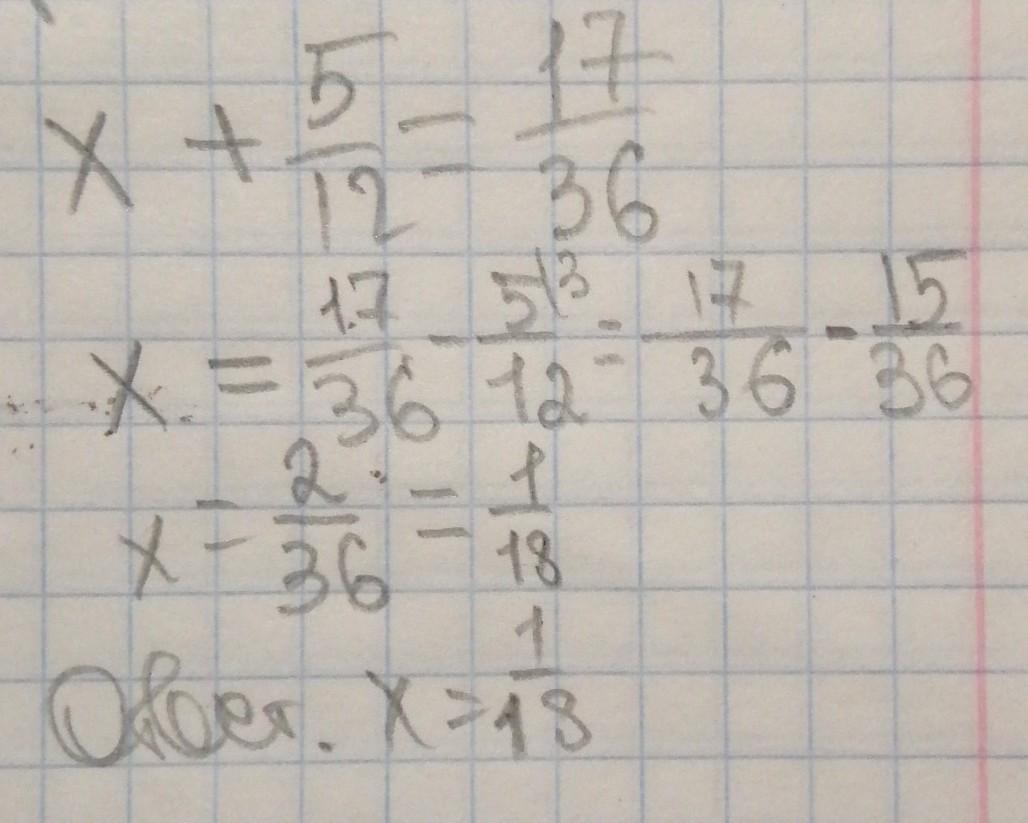 x + 5/12 = 17/36
x = 17/36 - 5\3/12 = 17/36 - 15/36
x = 2/36 = 1/18
Ответ. x = 1/18